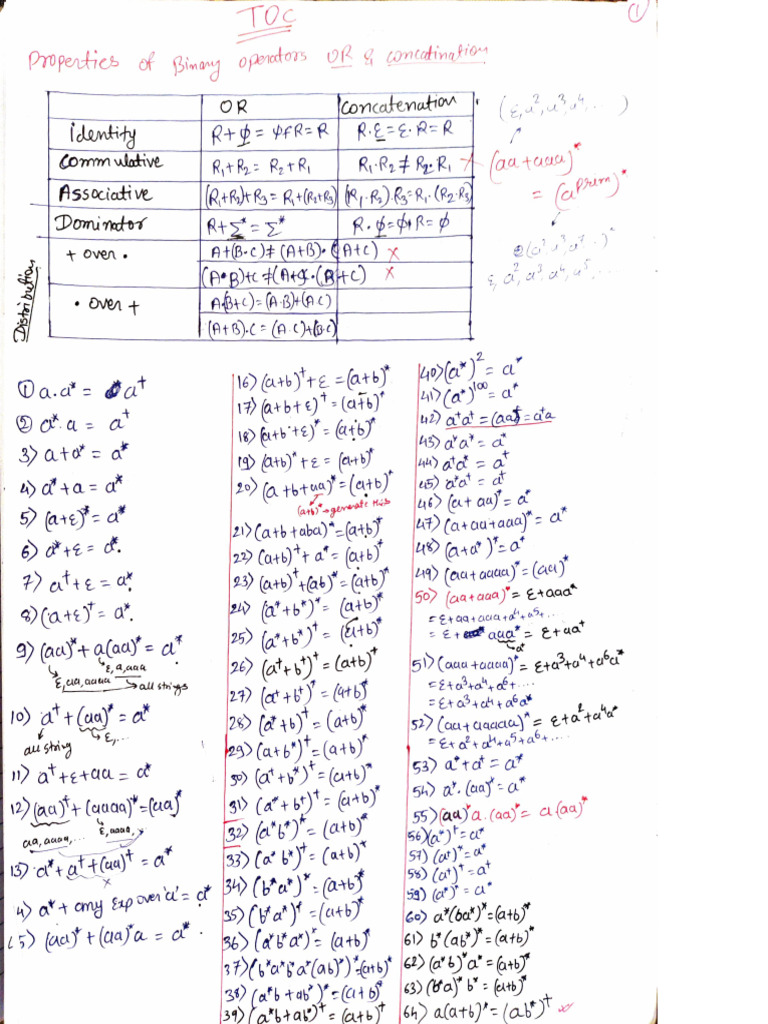 TOC
①
Properties of Binary operators OR & Concatination
OR Concatenation
Identity R+ϕ = ϕ+R=R R.ε=ε.R=R
Commulative R₁+R₂ = R₂+R₁ R₁.R₂≠R₂.R₁ ×
Associative (R₁+R₂)+R₃=R₁+(R₂+R₃) (R₁.R₂).R₃=R₁.(R₂.R₃)
Dominator R+Σ*=Σ* R.ϕ=ϕ+R=ϕ
Distribution
+ over . A+(B.C)≠(A+B).(A+C) ×
(A.B)+C≠(A+C).(B+C) ×
. over + A.(B+C)=(A.B)+(A.C)
(A+B).C=(A.C)+(B.C)
(ε,a²,a³,a⁴,...)
(aa+aaa)*
= (a^Prum)*
ε,a²,a³,a⁴,a⁵,...
① a.a* = a⁺
② a*.a = a⁺
3) a+a* = a*
4) a*+a = a*
5) (a+ε)*=a*
6) a*+ε=a*.
7) a⁺+ε=a*.
8) (a+ε)⁺=a*.
9) (aa)*+a(aa)*=a*.
ε,aa,aaaa
ε,a,aaa
→all strings
10) a⁺+(aa)*=a*
all string
ε,...
11) a⁺+ε+aa=a*
12) (aa)⁺+(aaaa)*=(aa)*
aa,aaaa,...
ε,aaaa,
13) a*+a⁺+(aa)⁺=a*
×
4) a*+any Exp over 'a'=a*
15) (aa)⁺+(aa)*a=a*.
16) (a+b)⁺+ε=(a+b)*
17) (a+b+ε)⁺=(a+b)*
18) (a+b+ε)*=(a+b)*
19) (a+b)*+ε=(a+b)*
20) (a+b+aa)*=(a+b)*
(a+b)*→generate this
21) (a+b+aba)*=(a+b)*
22) (a+b)⁺+a*=(a+b)*
23) (a+b)⁺+(ab)*=(a+b)*
24) (a*+b*)*=(a+b)*
25) (a*+b*)⁺=(a+b)*
26) (a⁺+b⁺)⁺=(a+b)⁺
27) (a⁺+b⁺)*=(a+b)*
28) (a*+b)⁺=(a+b)*
29) (a+b*)⁺=(a+b)*
30) (a⁺+b*)⁺=(a+b)*
31) (a*+b⁺)⁺=(a+b)*
32) (a*b*)*=(a+b)*
33) (a*b*)⁺=(a+b)*
34) (b*a*)*=(a+b)*
35) (b*a*)⁺=(a+b)*
36) (a*b*a*)*=(a+b)*
37) (b*a*b*a*(ab)*)*=(a+b)*
38) (a*b+ab*)*=(a+b)*
39) (a*b+ab*)⁺=(a+b)⁺
40) (a*)²=a*
41) (a*)¹⁰⁰=a*
42) a⁺a⁺=(aa⁺)=a⁺a
43) a*a*=a*
44) a⁺a*=a⁺
45) a*a⁺=a⁺
46) (a+aa)*=a*
47) (a+aa+aaa)*=a*
48) (a+a*)*=a*
49) (aa+aaaa)*=(aa)*
50) (aa+aaa)*=ε+aaa*
=ε+aa+aaa+a⁴+a⁵+...
=ε+aaa*=ε+aa⁺
a⁺
51) (aaa+aaaa)*=ε+a³+a⁴+a⁶a*
=ε+a³+a⁴+a⁶+....
=ε+a³+a⁴+a⁶a*
52) (aa+aaaaa)*=ε+a²+a⁴a*
=ε+a²+a⁴+a⁵+a⁶+....
53) a*+a⁺=a*
54) a*.(aa)*=a*
55) (aa)*a.(aa)*=a.(aa)*
56) (a*)⁺=a*
57) (a⁺)*=a*
58) (a⁺)⁺=a⁺
59) (a*)*=a*
60) a*(ba*)*=(a+b)*
61) b*(ab*)*=(a+b)*
62) (a*b)*a*=(a+b)*
63) (b*a)*b*=(a+b)*
64) a(a+b)*=(ab*)⁺